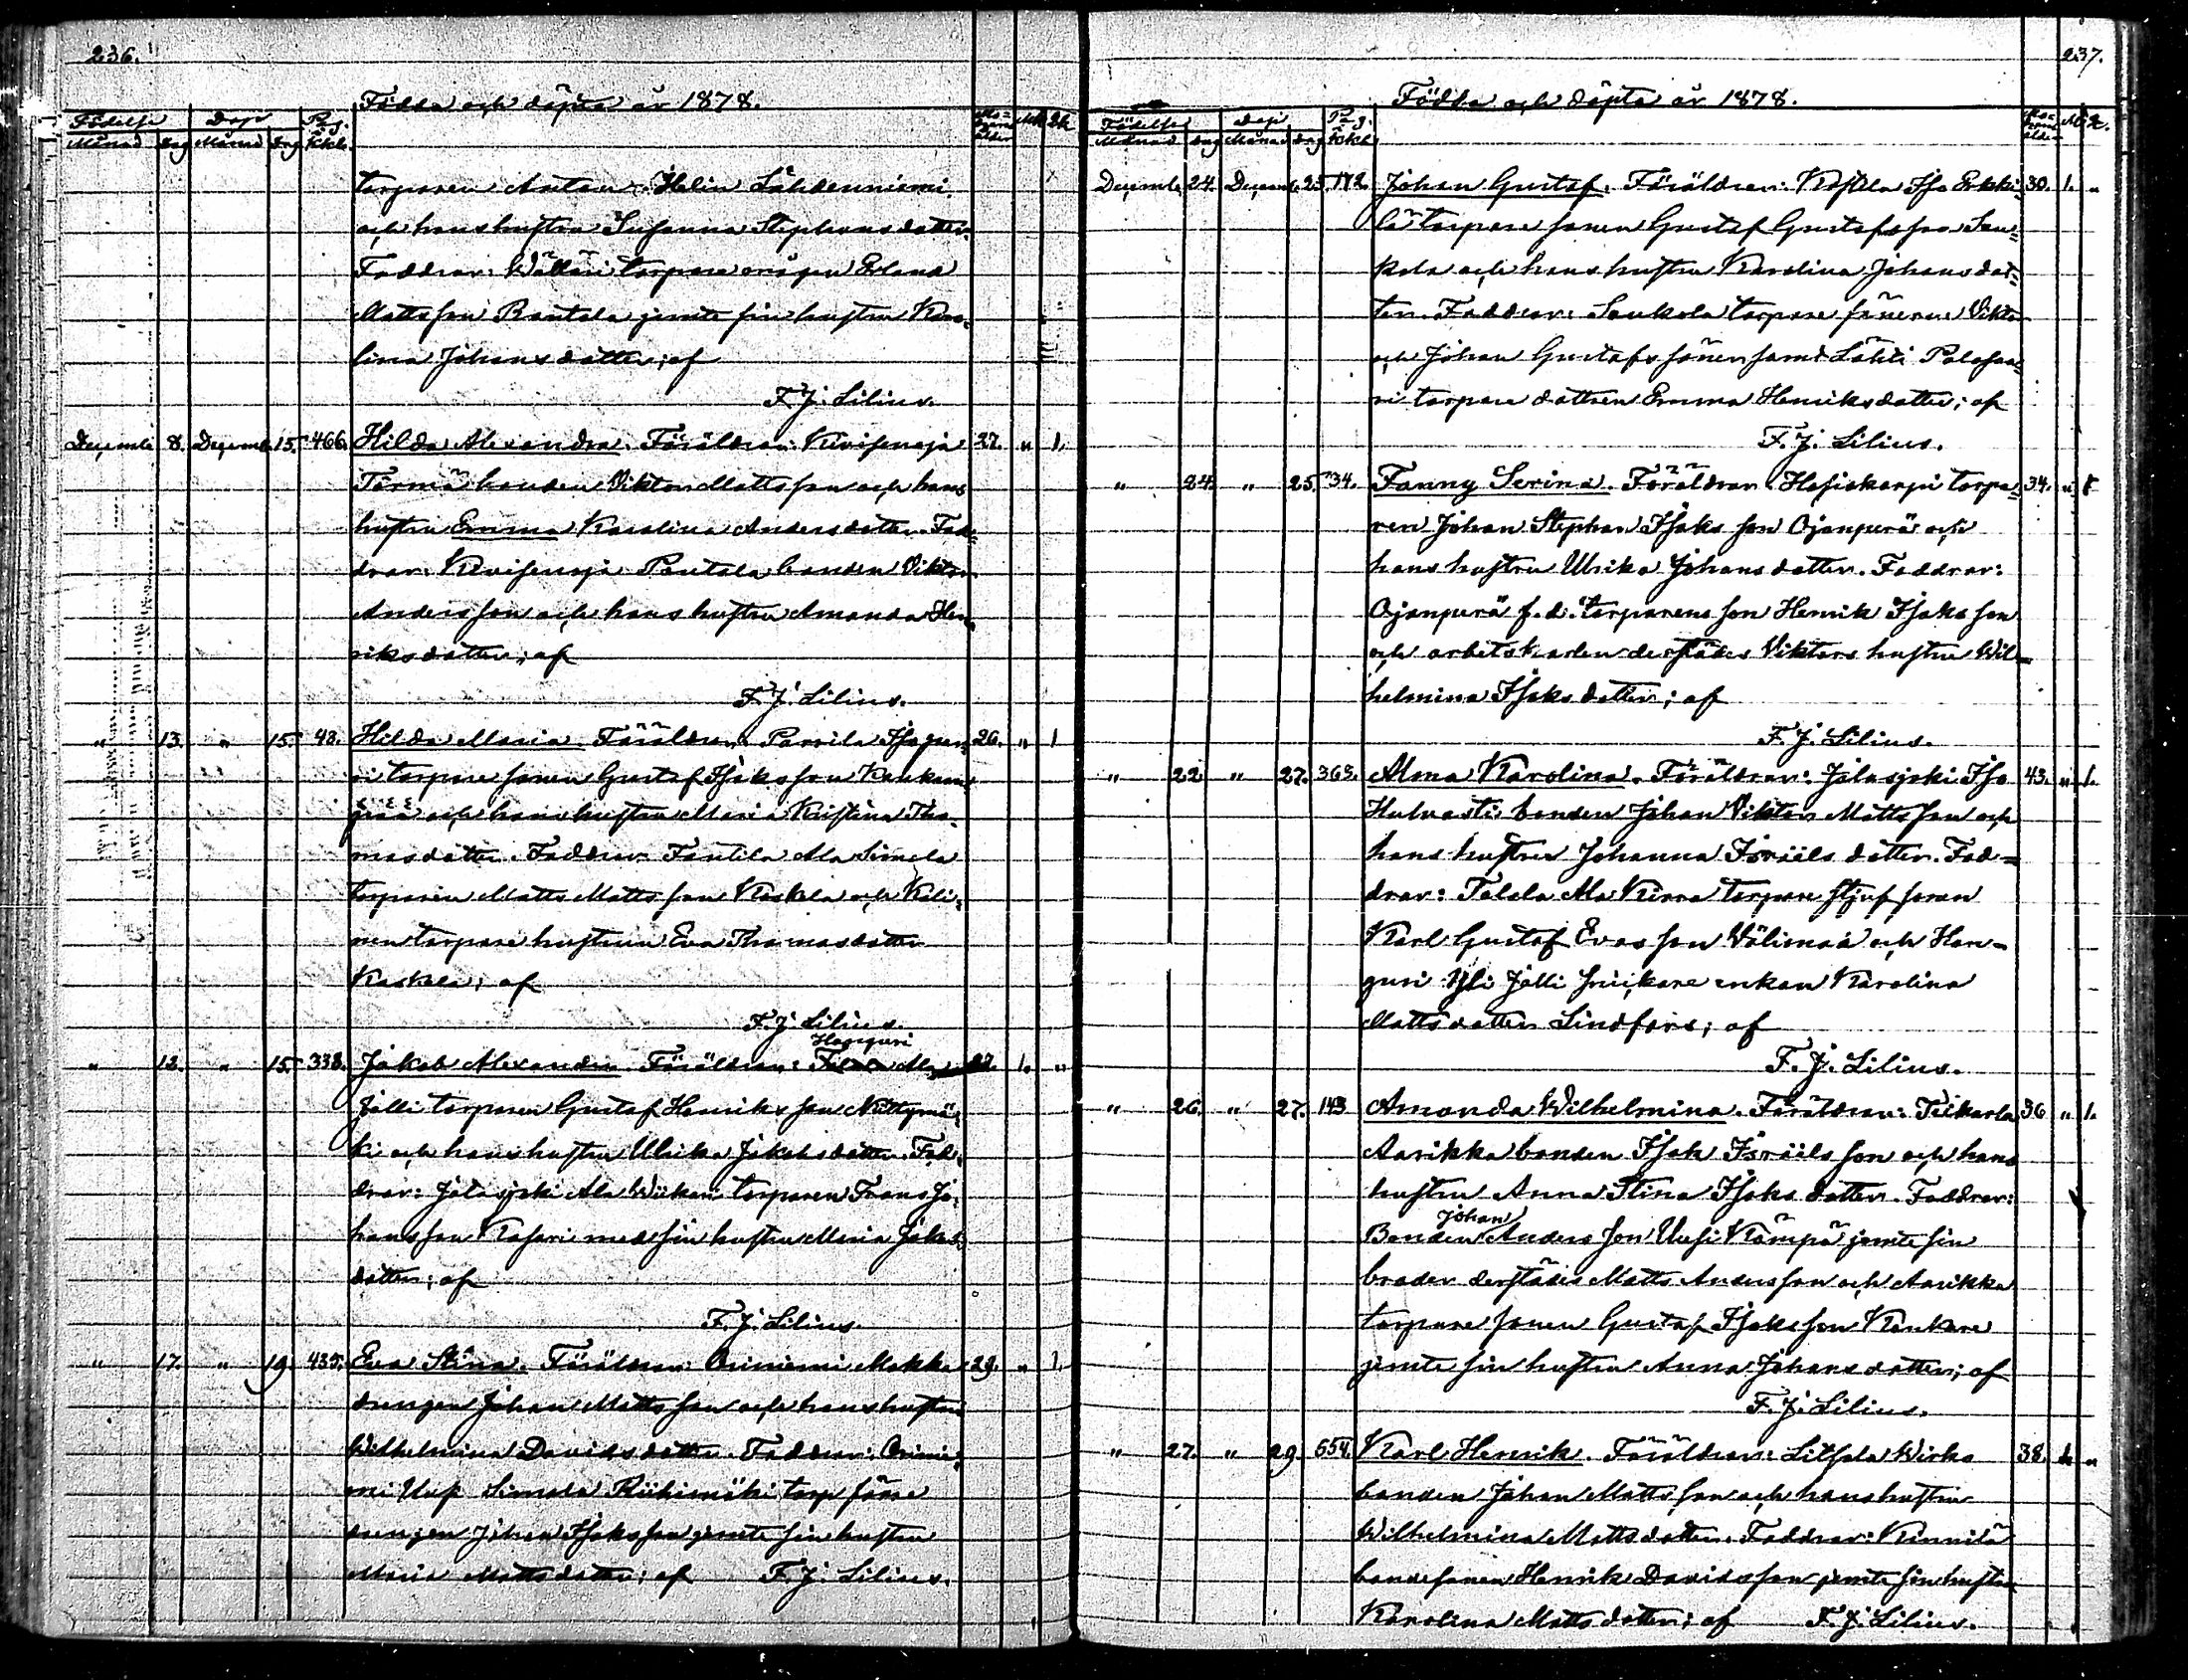 236.
Födda och döpta år 1878.
Födelse Dop Pag. i
Månad dag Månad dag kkb. ålder Mk Qk
torparen Anton Helin Lähdenniemi
och hans hustru Susanna Stephansdotter.
Faddrar: Wälläri torpare mågen Erland
Mattsson Rantala jemte sin hustru Karo-
lina Johansdotter; af
F. J. Lilius.
Decemb. 8. Decemb. 15. 466. Hilda Alexandra. Föräldrar: Kivisenoja 27. " 1.
Törmä bonden Viktor Mattsson och hans
hustru Emma Karolina Andersdotter. Fad-
drar: Kivisenoja Pentala bonden Viktor
Andersson och hans hustru Amanda Hen-
riksdotter; af
F. J. Lilius.
" 13. " 15. 48. Hilda Maria. Föräldrar: Parvila 26. " 1
torpare sonen Gustaf Isaksson
och hans hustru Maria Kristina Tho-
masdotter. Faddrar: Fantila Ala Simola
torparen Matts Mattsson Kaskela och
torpare hustrun Eva Thomasdotter
Kaskela; af
F. J. Lilius.
Hanguri
" 12. " 15. 338. Jakob Alexander. Föräldrar: 27. 1. "
Jälli torparen Gustaf Henriksson
ki och hans hustru Ulrika Jakobsdotter. Fad-
drar: Jalasjoki Ala Wiikari torparen Frans Jo-
hansson Kasari med sin hustru Maria Jakobs-
dotter; af
F. J. Lilius.
" 17. " 19. 435. Eva Stina. Föräldrar: Oriniemi Makka 29. " 1.
drengen Johan Mattsson och hans hustru
Wilhelmina Davidsdotter. Faddrar: Orinie-
mi Uusi Simola Riihimäki torp förre
drengen Johan Isaksson jemte sin hustru
Maria Mattsdotter; af F. J. Lilius.
237.
Födda och döpta år 1878.
Födelse Dop Pag. i
Månad dag Månad dag kkb. ålder M. Q.
Decemb. 24. Decemb. 25. 172. Johan Gustaf. Föräldrar: Iso Erkki- 30. 1. "
lä torpare sonen Gustaf Gustafsson Sau-
kola och hans hustru Karolina Johansdot-
ter. Faddrar: Saukola torpare sönerne Viktor
och Johan Gustafs söner samt Lähti Palosaa-
ri torpare dottren Emma Henriksdotter; af
F. J. Lilius.
" 24. " 25. 734. Fanny Serina. Föräldrar: torpa- 34. " 1
ren Johan Stephan Isaksson Ojanperä och
hans hustru Ulrika Johansdotter. Faddrar:
Ojanperä f. d. torparens son Henrik Isaksson
och arbetskarlen derstädes Viktors hustru Wil-
helmina Isaksdotter; af
F. J. Lilius.
" 22. " 27. 363. Alma Karolina. Föräldrar: Jalasjoki Iso 43. " 1.
Hulvasti bonden Johan Viktor Mattsson och
hans hustru Johanna Isräilsdotter. Fad-
drar: Talala Ala Kirra torpare stjufsonen
Karl Gustaf Evasson Välimaa och Han-
guri Yli Jälli snickare enkan Karolina
Mattsdotter Lindfors; af
F. J. Lilius.
" 26. " 27. 143 Amanda Wilhelmina. Föräldrar: Teikarla 36 " 1.
Aarikka bonden Isak Isräilsson och hans
hustru Anna Stina Isaksdotter. Faddrar:
Bonden Johan Andersson Uusi Kämpä jemte sin
broder derstädes Matts Andersson och Aarikka
torpare sonen Gustaf Isaksson Kenkare
jemte sin hustru Anna Johansdotter; af
F. J. Lilius.
" 27. " 29. 554. Karl Henrik. Föräldrar: Litsola Wirho 38. 1. "
bonden Johan Mattsson och hans hustru
Wilhelmina Mattsdotter. Faddrar: Kinnilä
bondesonen Henrik Davidsson jemte sin hustru
Karolina Mattsdotter; af F. J. Lilius.